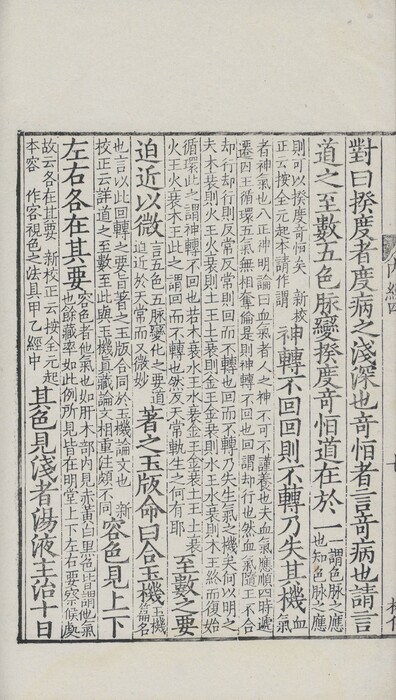 對曰揆度者度病之淺深也竒恒者言竒病也請言
道之至數五色脉變揆度竒恒道在於一
一謂色脉之應
也知色脉之應
則可以揆度竒恒矣 新校
正云按全元起本請作謂
神轉不回回則不轉乃失其機
血
氣
者神氣也八正神明論曰血氣者人之神不可不謹養也夫血氣應順四時遞
遷囚王循環五氣無相奪倫是則神轉不回也回謂却行也然血氣隨王不合
却行却行則反常反常則回而不轉也回而不轉乃失生氣之機矣何以明之
夫木衰則火王火衰則土王土衰則金王金衰則水王水衰則木王終而復始
循環此之謂神轉不回也若木衰水王水衰金王金衰土王土衰
火王火衰木王此之謂回而不轉也然反天常軌生之何有耶
至數之要
迫近以微
言五色五脉變化之要道
迫近於天常而又微妙
著之玉版命曰合玉機
玉機
篇名
也言以此回轉之要旨著之玉版合同於玉機論文也 新
校正云詳道之至數至此與玉機真藏論文相重注頗不同
容色見上下
左右各在其要
容色者他氣也如肝木部內見赤黃白黑色皆謂他氣
也餘藏率如此例所見皆在明堂上下左右要察候處
故云各在其要 新校正云按全元起
本容作客視色之法具甲乙經中
其色見淺者湯液主治十日